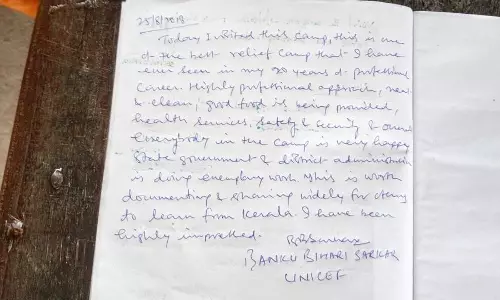 25/8/2018
Today I visited this camp, this is one
of the best relief camp that I have
ever seen in my 20 years of professional
career. Highly professional approach, neat
& clean, good food is being provided,
health services, safety & security &
everybody in the camp is very happy
State government & district administration
is doing exemplary work. This is worth
documenting & sharing widely for others
to learn from Kerala. I have been
highly impressed.
BBSarkar
BANKU BIHARI SARKAR
UNICEF